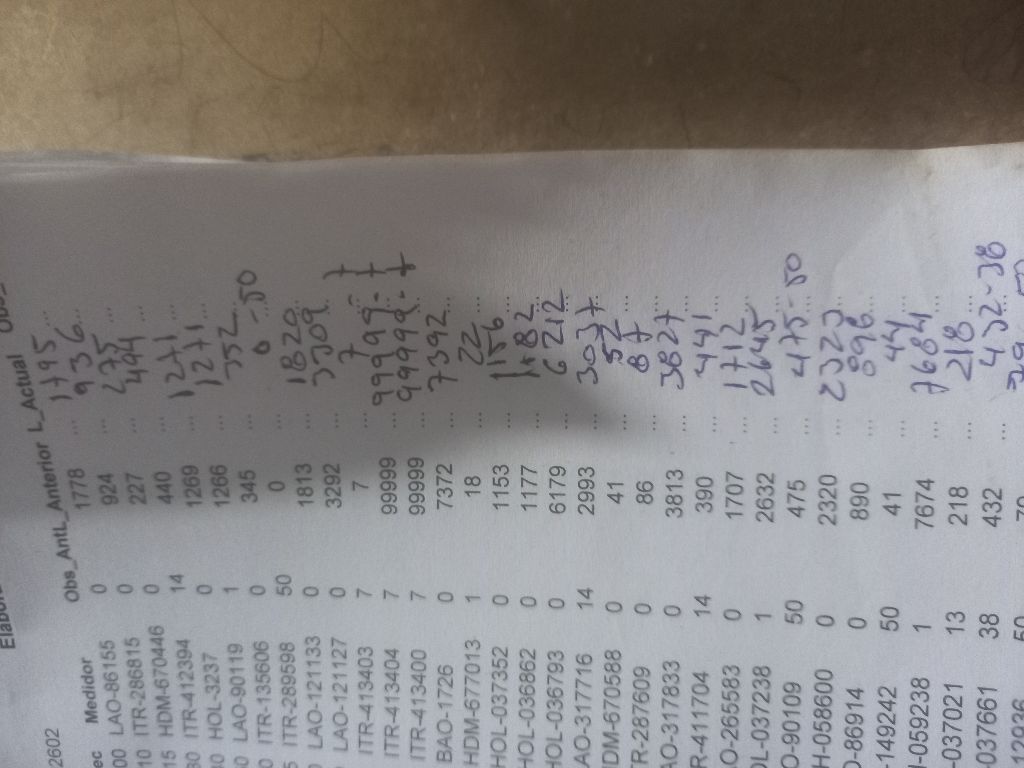 Elabora
2602
ec Medidor Obs_Ant L_Anterior L_Actual Obs_
00 LAO-86155 0 1778 ... 1795 ...
10 ITR-286815 0 924 ... 936 ...
15 HDM-670446 0 227 ... 235 ...
30 ITR-412394 14 440 ... 494 ...
40 HOL-3237 0 1269 ... 1271 ...
50 LAO-90119 1 1266 ... 1271 ...
0 ITR-135606 345 ... 352 ...
5 ITR-289598 50 0 ... 0 -50
LAO-121133 0 1813 ... 1820 ...
LAO-121127 0 3292 ... 3309 ...
ITR-413403 7 7 ... 7 7
ITR-413404 7 99999 ... 99999 - 7
ITR-413400 7 99999 ... 99999 - 7
BAO-1726 0 7372 ... 7392 ...
HDM-677013 1 18 ... 22 ...
HOL-037352 0 1153 ... 1156 ...
HOL-036862 0 1177 ... 1182 ...
HOL-036793 0 6179 ... 6212 ...
AO-317716 14 2993 ... 3037 ...
DM-670588 0 41 ... 52 ...
TR-287609 0 86 ... 87 ...
AO-317833 0 3813 ... 3827 ...
R-411704 14 390 ... 441 ...
O-265583 0 1707 ... 1712 ...
OL-037238 1 2632 ... 2645 ...
O-90109 50 475 ... 475 - 50
H-058600 0 2320 ... 2323 ...
O-86914 0 890 ... 896 ...
-149242 50 41 ... 44 ...
-059238 1 7674 ... 7684 ...
-037021 13 218 ... 218 ...
037661 38 432 ... 432 - 38
12936 50 79 ... 79 50